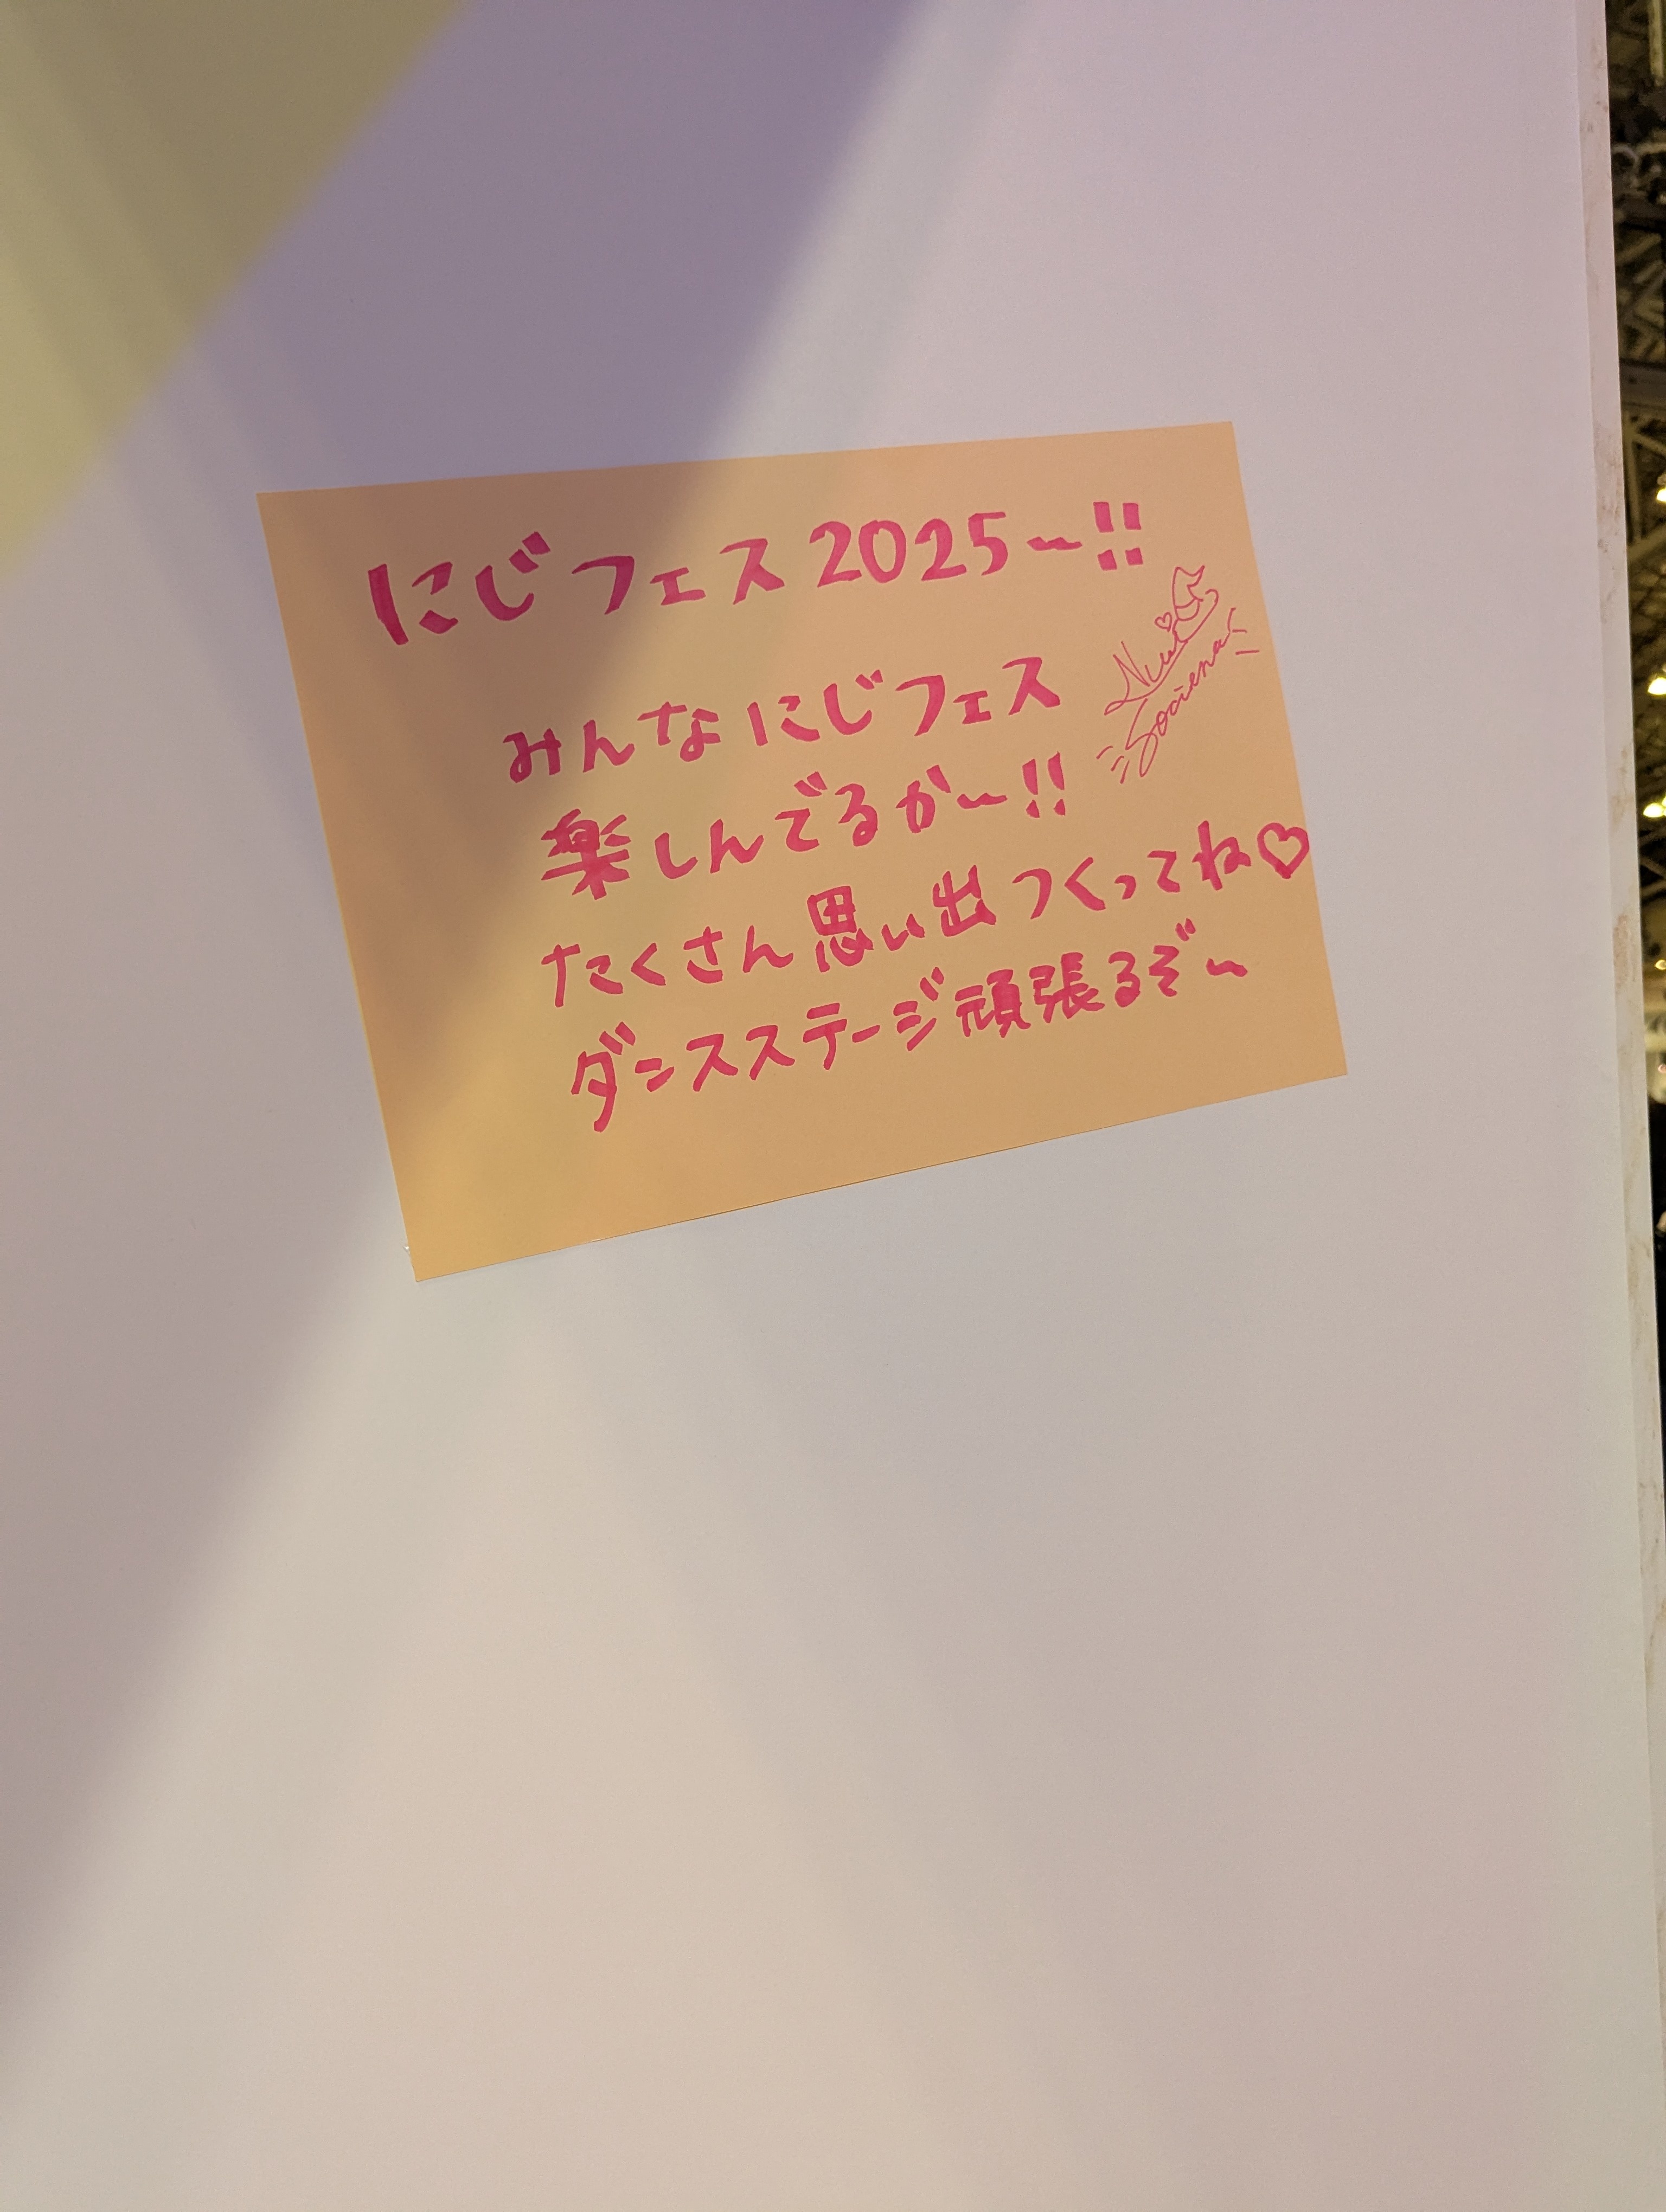 にじフェス2025〜!!
Nui
Sociena
みんなにじフェス
楽しんでるか〜!!
たくさん思い出つくってね♡
ダンスステージ頑張るぞ〜